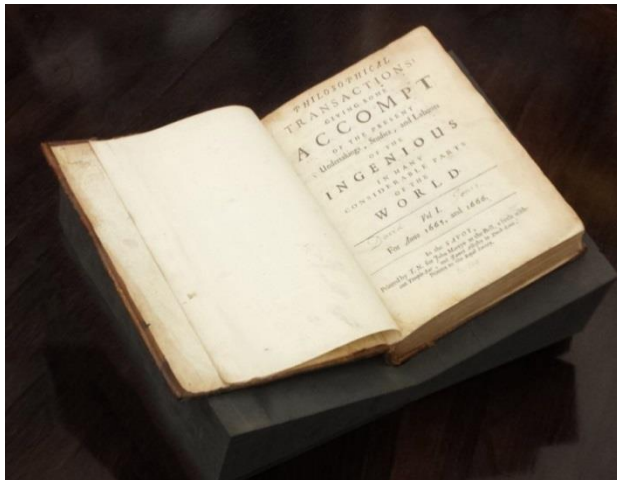 PHILOSOPHICAL
TRANSACTIONS:
GIVING SOME
ACCOMPT
OF THE PRESENT
Undertakings, Studies, and Labours
OF THE
INGENIOUS
IN MANY
CONSIDERABLE PARTS
OF THE
WORLD
Vol I.
For Anno 1665, and 1666.
In the SAVOY,
Printed by T. N. for John Martyn at the Bell, a little with-
out Temple-Bar, and James Allestry in Duck-Lane,
Printers to the Royal Society.